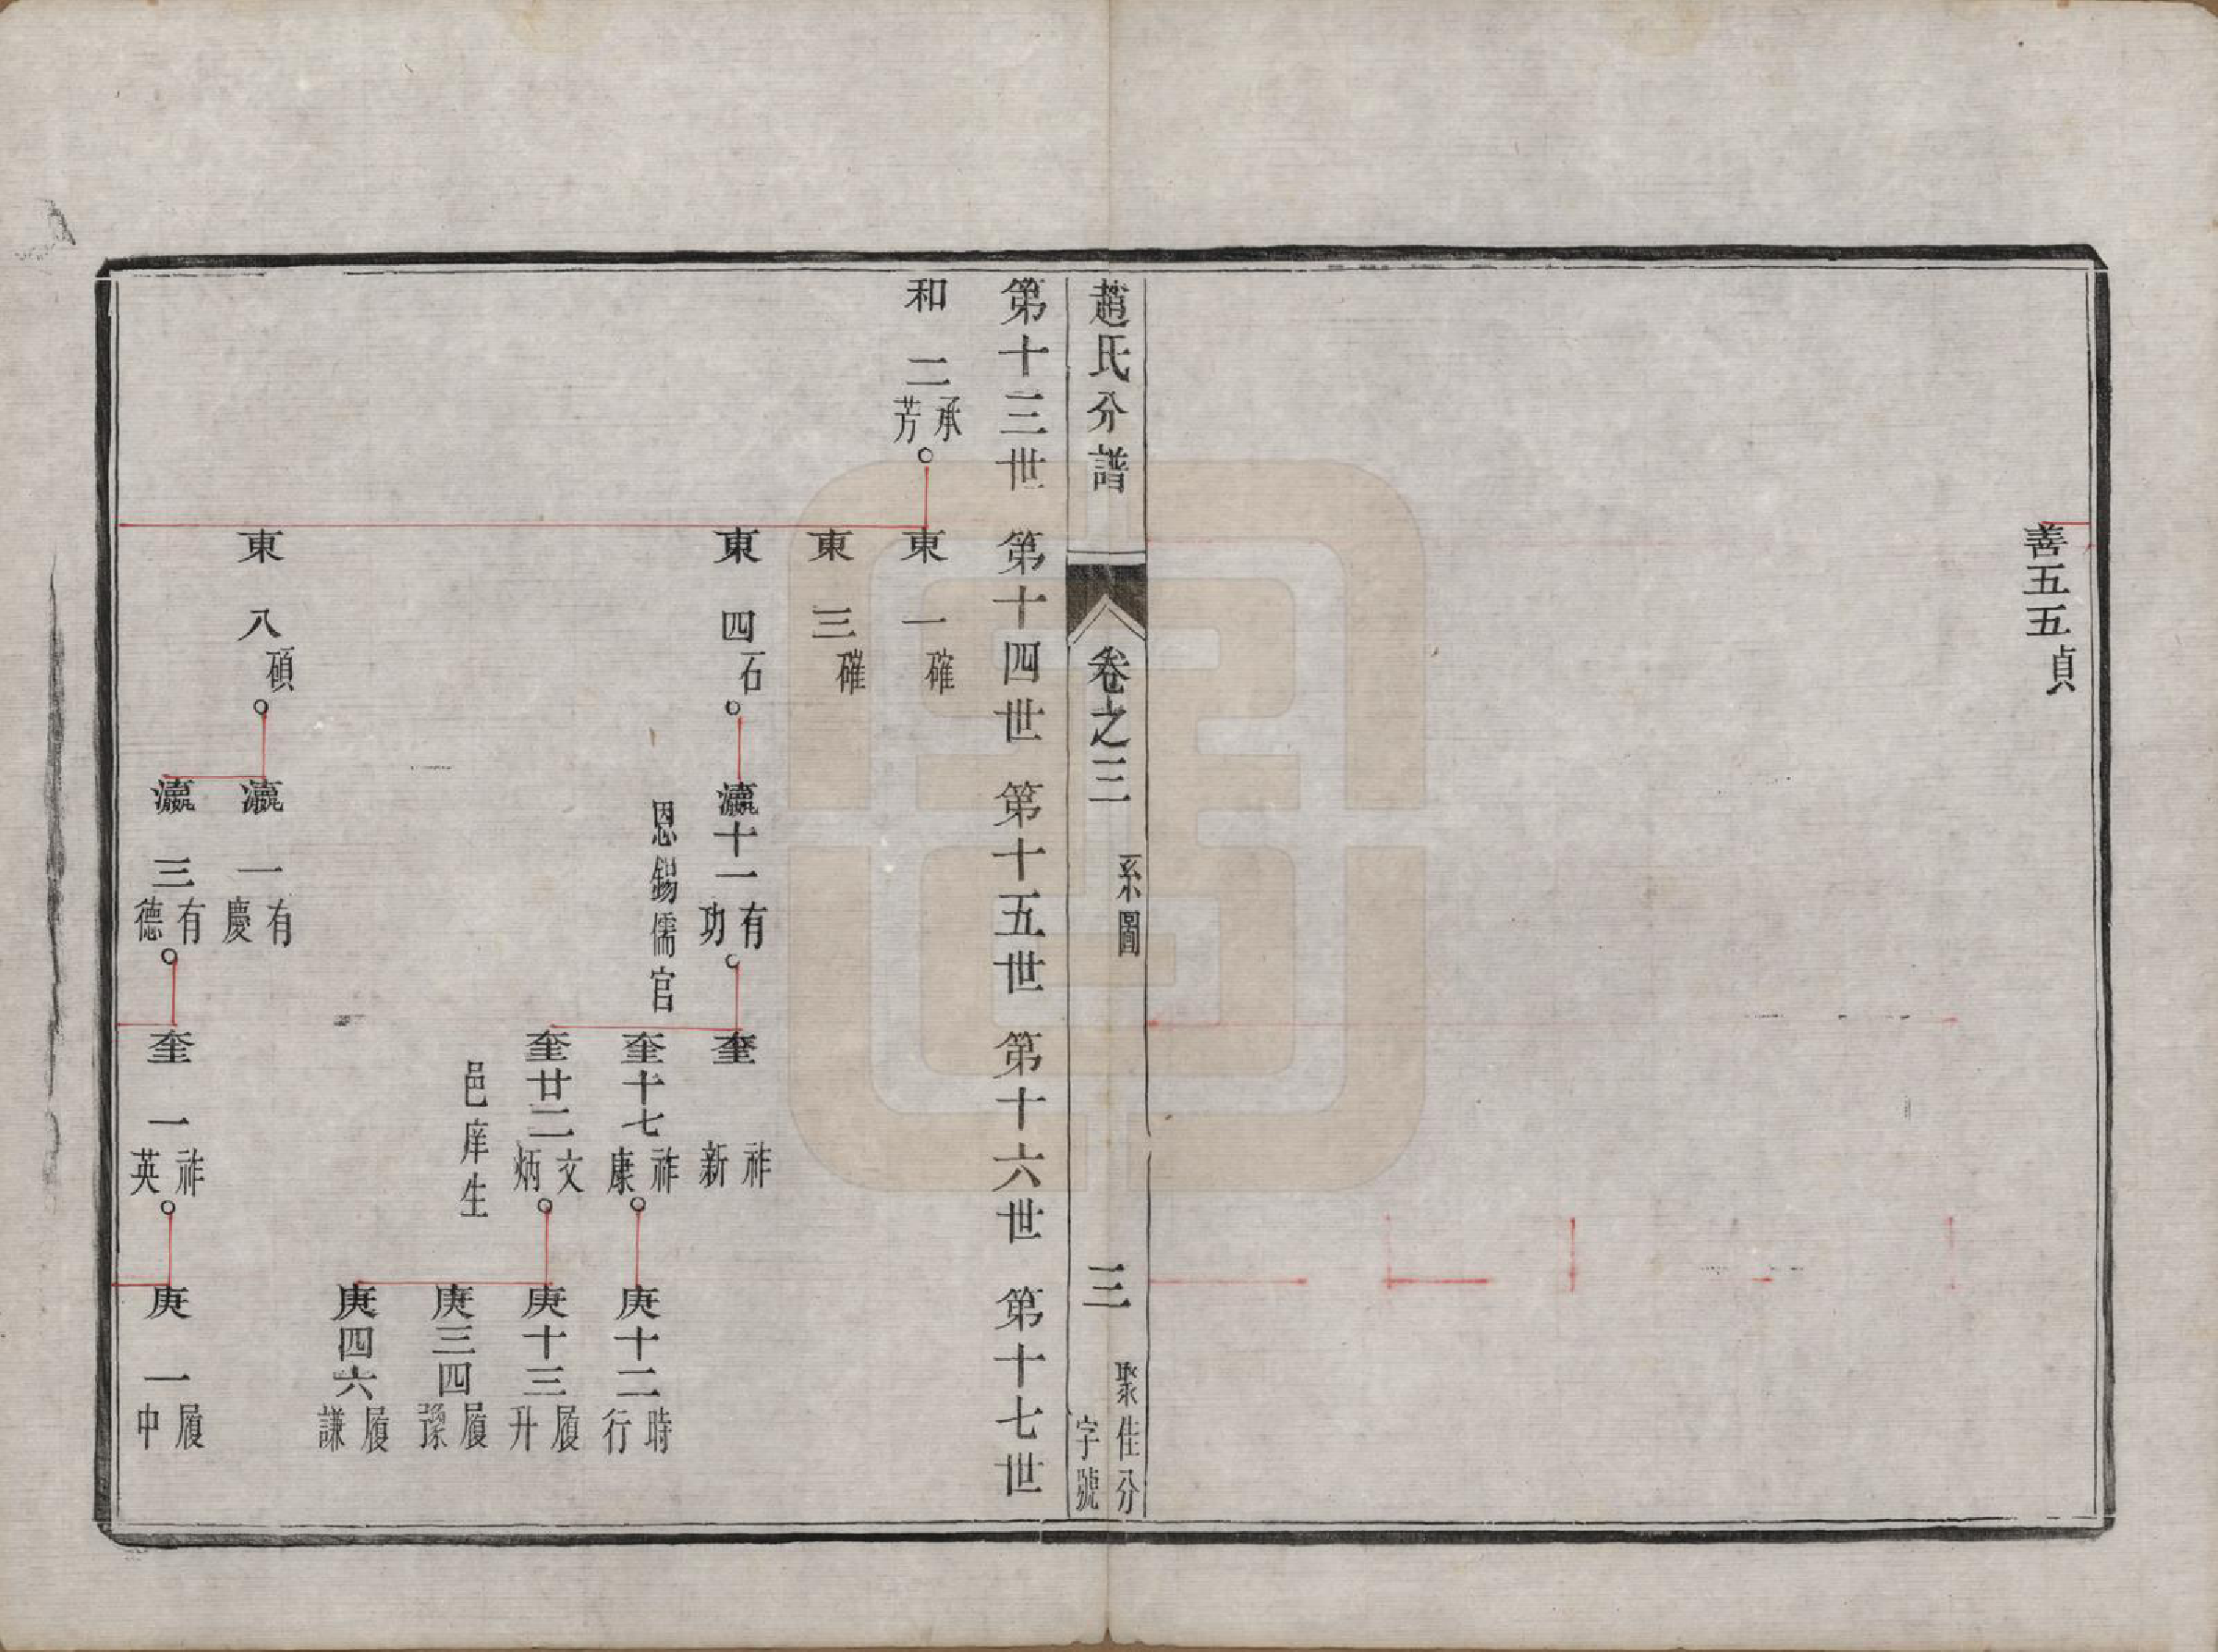 善五五貞
趙氏分譜
卷之三
系圖
三
聚佳分
字號
第十三世 第十四世 第十五世 第十六世 第十七世
和二承芳
東一確
東三確
東四石
瀛十一有功
恩錫儒官
奎祚新
奎十七祚康
庚十二時行
奎廿二文炳
邑庠生
庚十三履升
庚三四履豫
庚四六履謙
東八碩
瀛一有慶
瀛三有德
奎一祚英
庚一履中